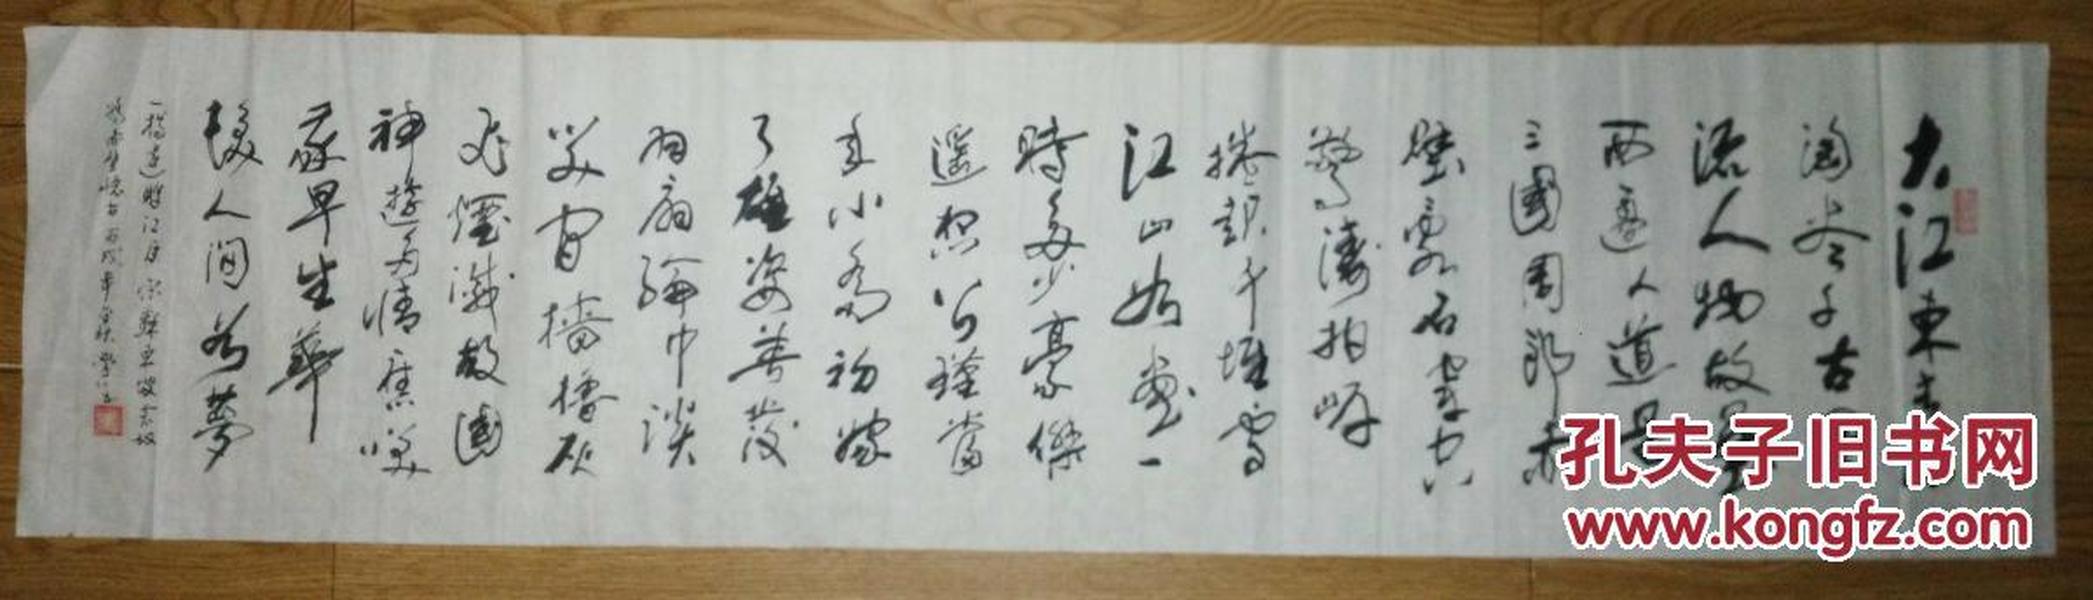 大江東去
淘尽千古風
流人物故壘
西邊人道是
三國周郎赤
壁亂石穿空
驚濤拍岸
捲起千堆雪
江山如畫一
時多少豪傑
遥想公瑾當
年小喬初嫁
了雄姿英發
羽扇綸巾談
笑間檣櫓灰
飛煙滅故國
神遊多情應笑
我早生華
髮人間若夢
一樽還酹江月 宋蘇東坡念奴
嬌赤壁懷古
孔夫子旧书网
www.kongfz.com